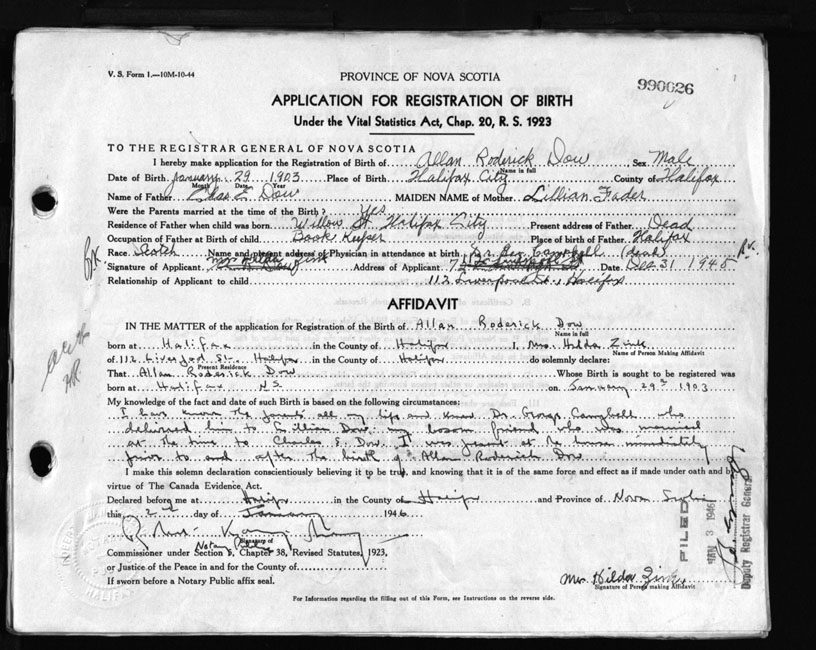 V. S. Form 1.—10M-10-44
PROVINCE OF NOVA SCOTIA
990026
APPLICATION FOR REGISTRATION OF BIRTH
Under the Vital Statistics Act, Chap. 20, R. S. 1923
TO THE REGISTRAR GENERAL OF NOVA SCOTIA
I hereby make application for the Registration of Birth of Allan Roderick Dow Sex Male
Name in full
Date of Birth January 29 1903 Place of Birth Halifax City County of Halifax
Month Date Year
Name of Father Chas S Dow MAIDEN NAME of Mother Lillian Fader
Were the Parents married at the time of the Birth? Yes
Residence of Father when child was born Willow St. Halifax City Present address of Father Dead
Occupation of Father at Birth of child Book Keeper Place of birth of Father Halifax
Race Scotch Name and present address of Physician in attendance at birth Dr. Geo. Campbell (dead)
Signature of Applicant Mrs Hilda Zink Address of Applicant Date Dec 31 1945
Relationship of Applicant to child 112 Liverpool St., Halifax
AFFIDAVIT
IN THE MATTER of the application for Registration of the Birth of Allan Roderick Dow
Name in full
born at Halifax in the County of Halifax I, Mrs. Hilda Zink
Name of Person Making Affidavit
of 112 Liverpool St. Halifax in the County of Halifax do solemnly declare:
Present Residence
That Allan Roderick Dow Whose Birth is sought to be registered was
born at Halifax N.S. on January 29th 1903
My knowledge of the fact and date of such Birth is based on the following circumstances:
I have known the parents all my life and knew Dr. George Campbell who
delivered him to Lillian Dow, my bosom friend who was married
at the time to Charles S. Dow. I was present at the house immediately
prior to and after the birth of Allan Roderick Dow
I make this solemn declaration conscientiously believing it to be true, and knowing that it is of the same force and effect as if made under oath and by
virtue of The Canada Evidence Act.
Declared before me at Halifax in the County of Halifax and Province of Nova Scotia
this 2nd day of January 1946
Signature of
Notary Public
Commissioner under Section 5, Chapter 38, Revised Statutes, 1923,
or Justice of the Peace in and for the County of
If sworn before a Notary Public affix seal.
Mrs. Hilda Zink
Signature of Person making Affidavit
For Information regarding the filling out of this Form, see Instructions on the reverse side.
FILED
JAN 3 1946
Deputy Registrar General